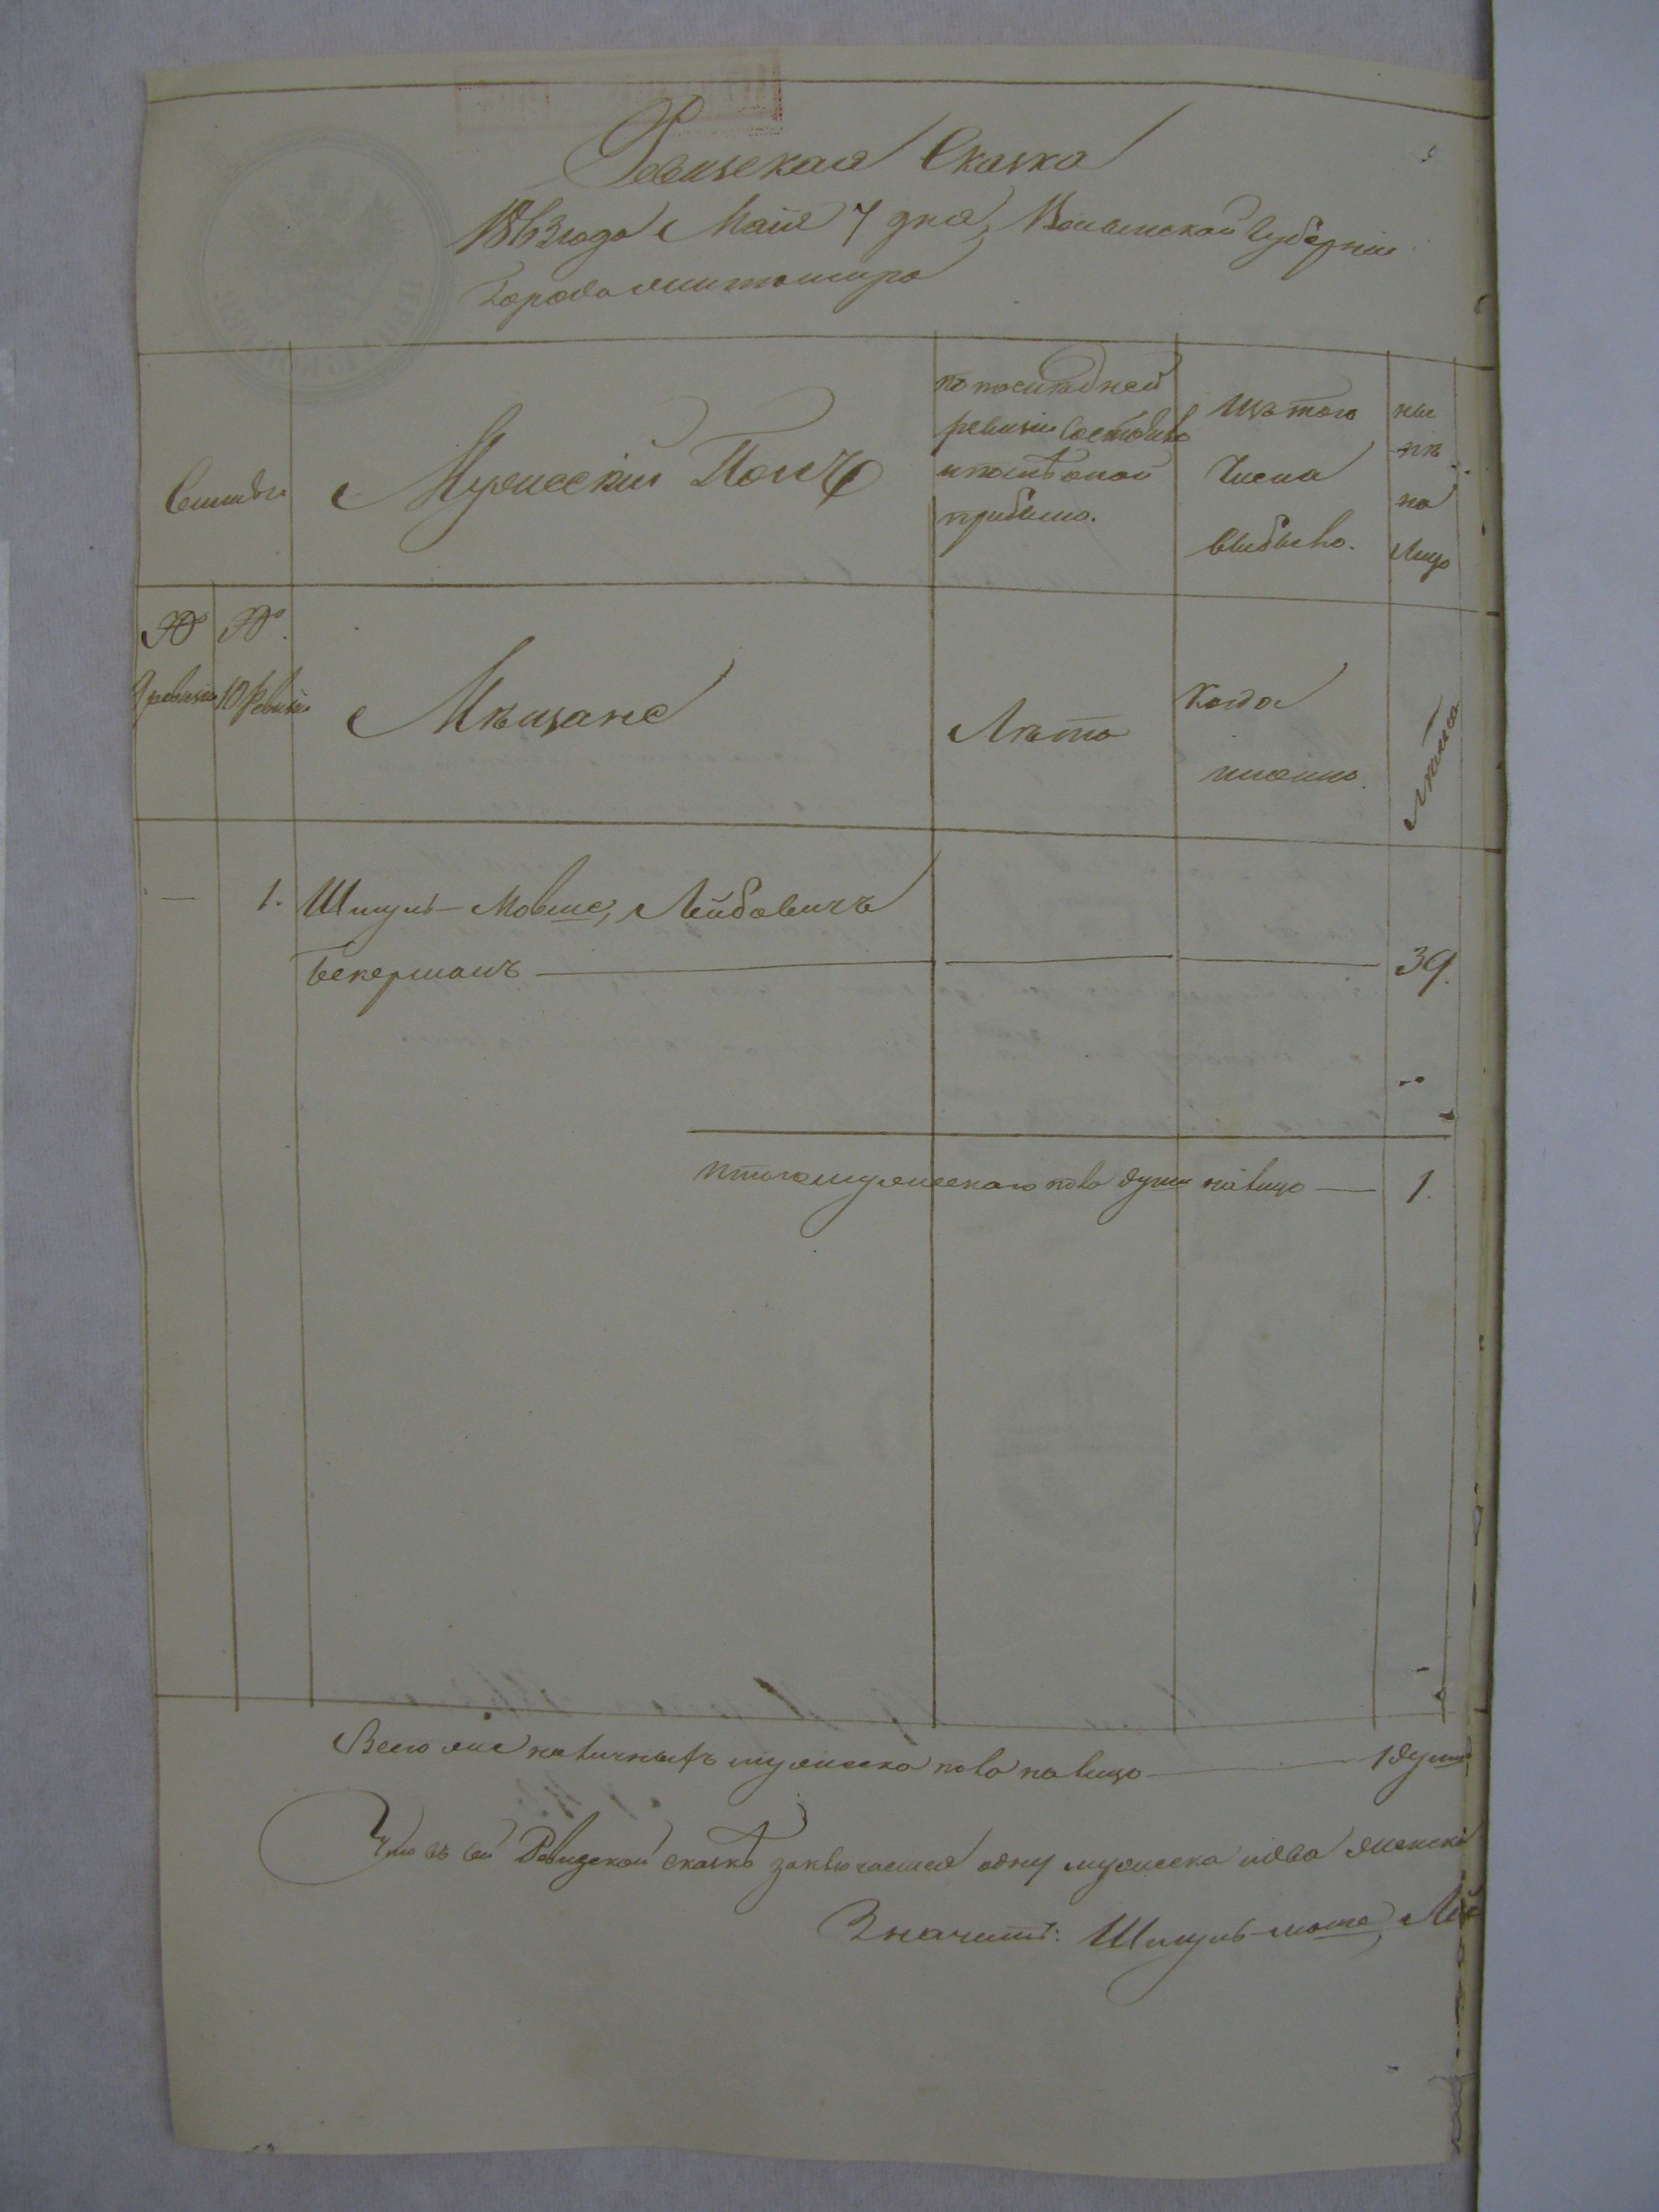 Ревизская Сказка
1863 года Маія 7 дня, Волынской Губерніи
Города Житомира
Семьи
Мужескій Полъ
по последней
ревизіи состояло
и послѣ оной
прибыло.
Изъ того
Числа
выбыло.
ны
нѣ
на
Лицо
№ №
9 ревизіи 10 Ревизіи
Мѣщане
Лѣто
Когда
именно.
Лѣта
— 1. Шмуль-Мовше, Лейбовичъ
Бекерманъ — 39.
Итого мужескаго пола душъ на лицо — 1.
Всего же наличныхъ мужеска пола на лицо — 1 душа
Что въ сей Ревизской сказкѣ заключается одну мужеска пола
Значитъ: Шмуль-